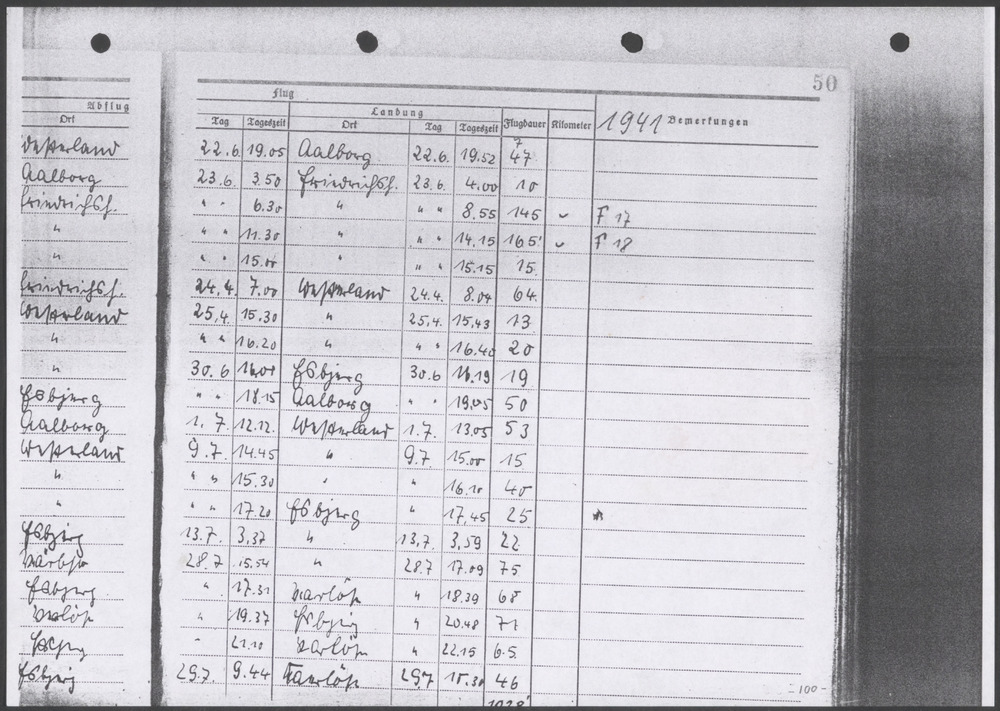 50
Flug
Abflug Landung
Ort Tag Tageszeit Ort Tag Tageszeit Flugdauer Kilometer 1941 Bemerkungen
Westerland 22.6. 19.05 Aalborg 22.6. 19.52 47
Aalborg 23.6. 3.50 Friedrichsh. 23.6. 4.00 10
Friedrichsh. " " 6.30 " " " 8.55 145 F 17
" " " 11.30 " " " 14.15 165 F 18
" " " 15.00 " " " 15.15 15
Friedrichsh. 24.4. 7.00 Westerland 24.4. 8.04 64
Westerland 25.4. 15.30 " 25.4. 15.43 13
" " " 16.20 " " " 16.40 20
" 30.6 Esbjerg 30.6 19
Esbjerg " " 18.15 Aalborg " " 19.05 50
Aalborg 1.7. 12.12. Westerland 1.7. 13.05 53
Westerland 9.7. 14.45 " 9.7 15.00 15
" " " 15.30 " " 16.10 40
" " " 17.20 Esbjerg " 17.45 25
Esbjerg 13.7. 3,37 " 13.7. 3,59 22
28.7 15.54 " 28.7 17.09 75
Esbjerg " 17.31 " 18.39 68
" 19.37 Esbjerg " 20.48 71
Esbjerg " 21.10 " 22.15 65
Esbjerg 29.7. 9.44 29.7 10.30 46
- 100 -